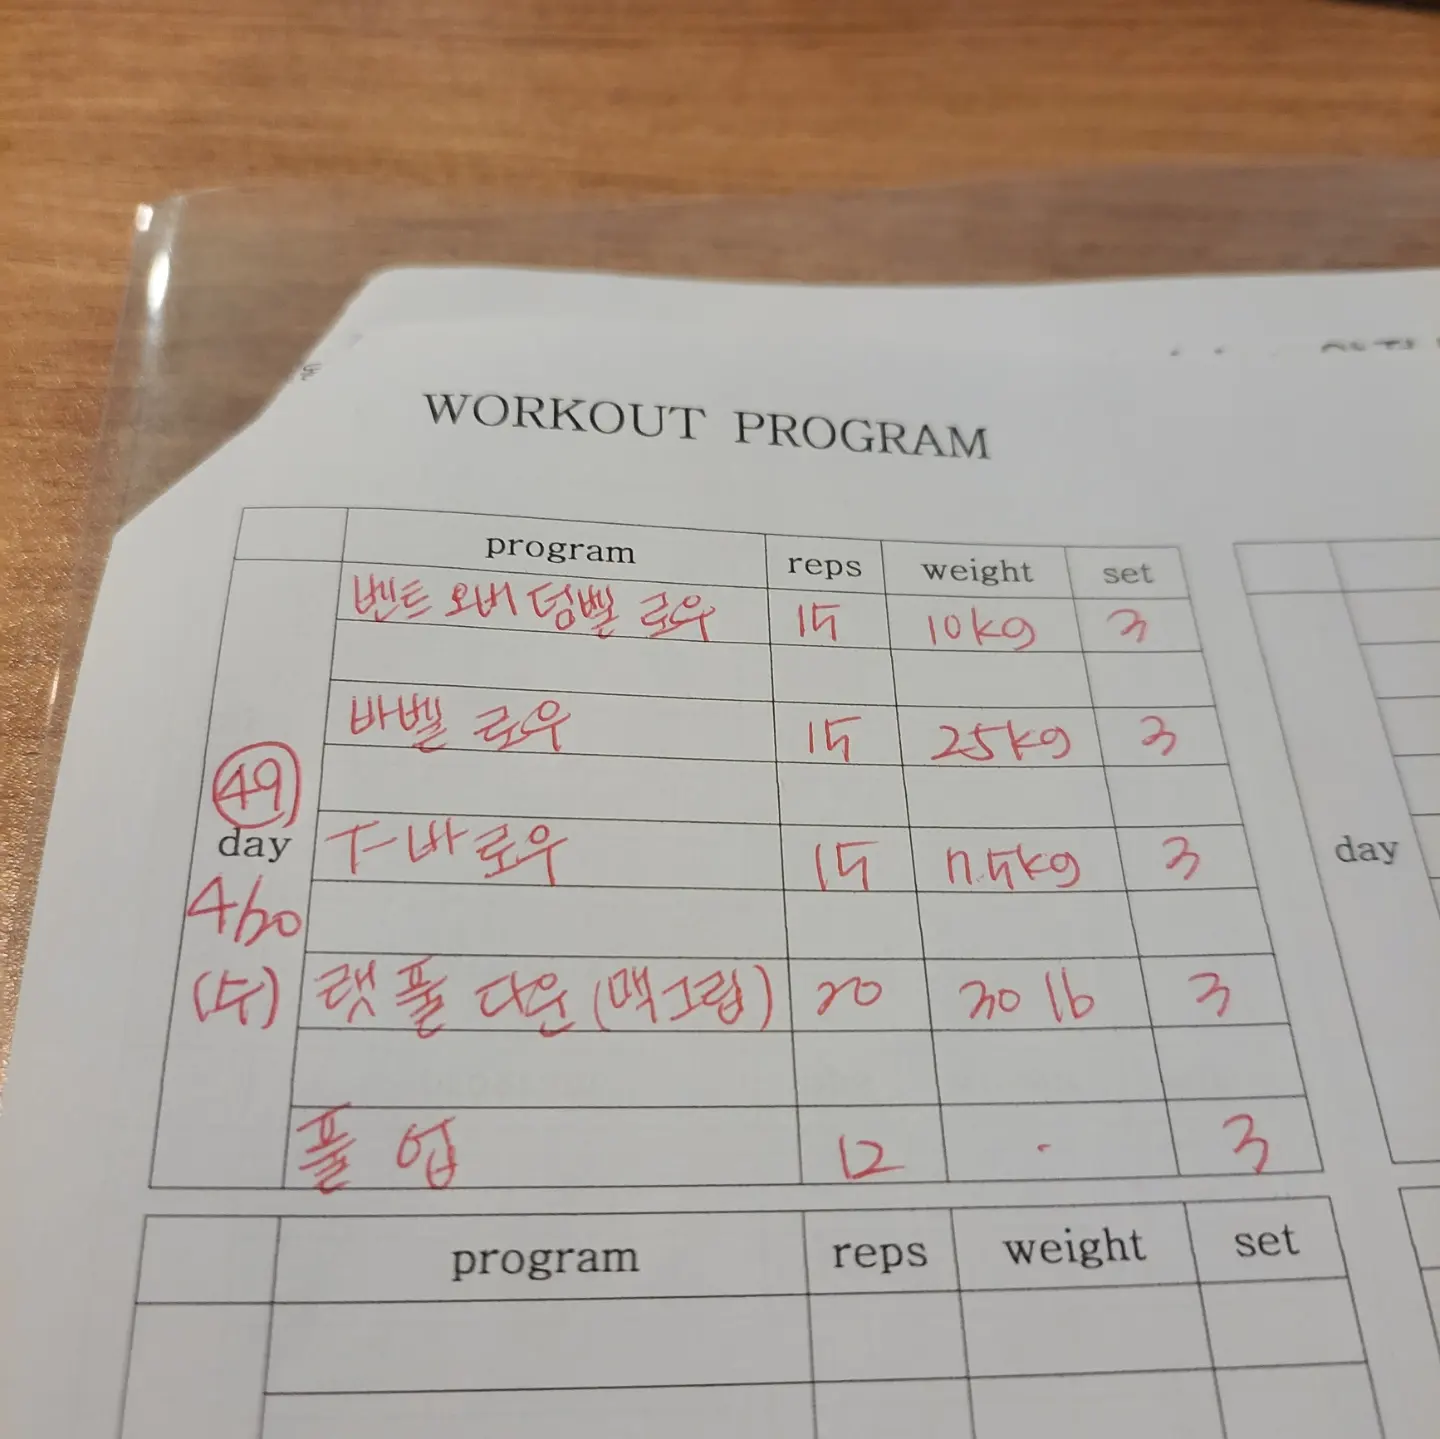 WORKOUT PROGRAM
program reps weight set
벤트 오버 덤벨 로우 15 10kg 3
바벨 로우 15 25kg 3
49
day
T-바 로우 15 7.5kg 3
day
4/30
(수)
랫 풀 다운 (맥그립) 20 30 lb 3
풀 업 12 · 3
program reps weight set